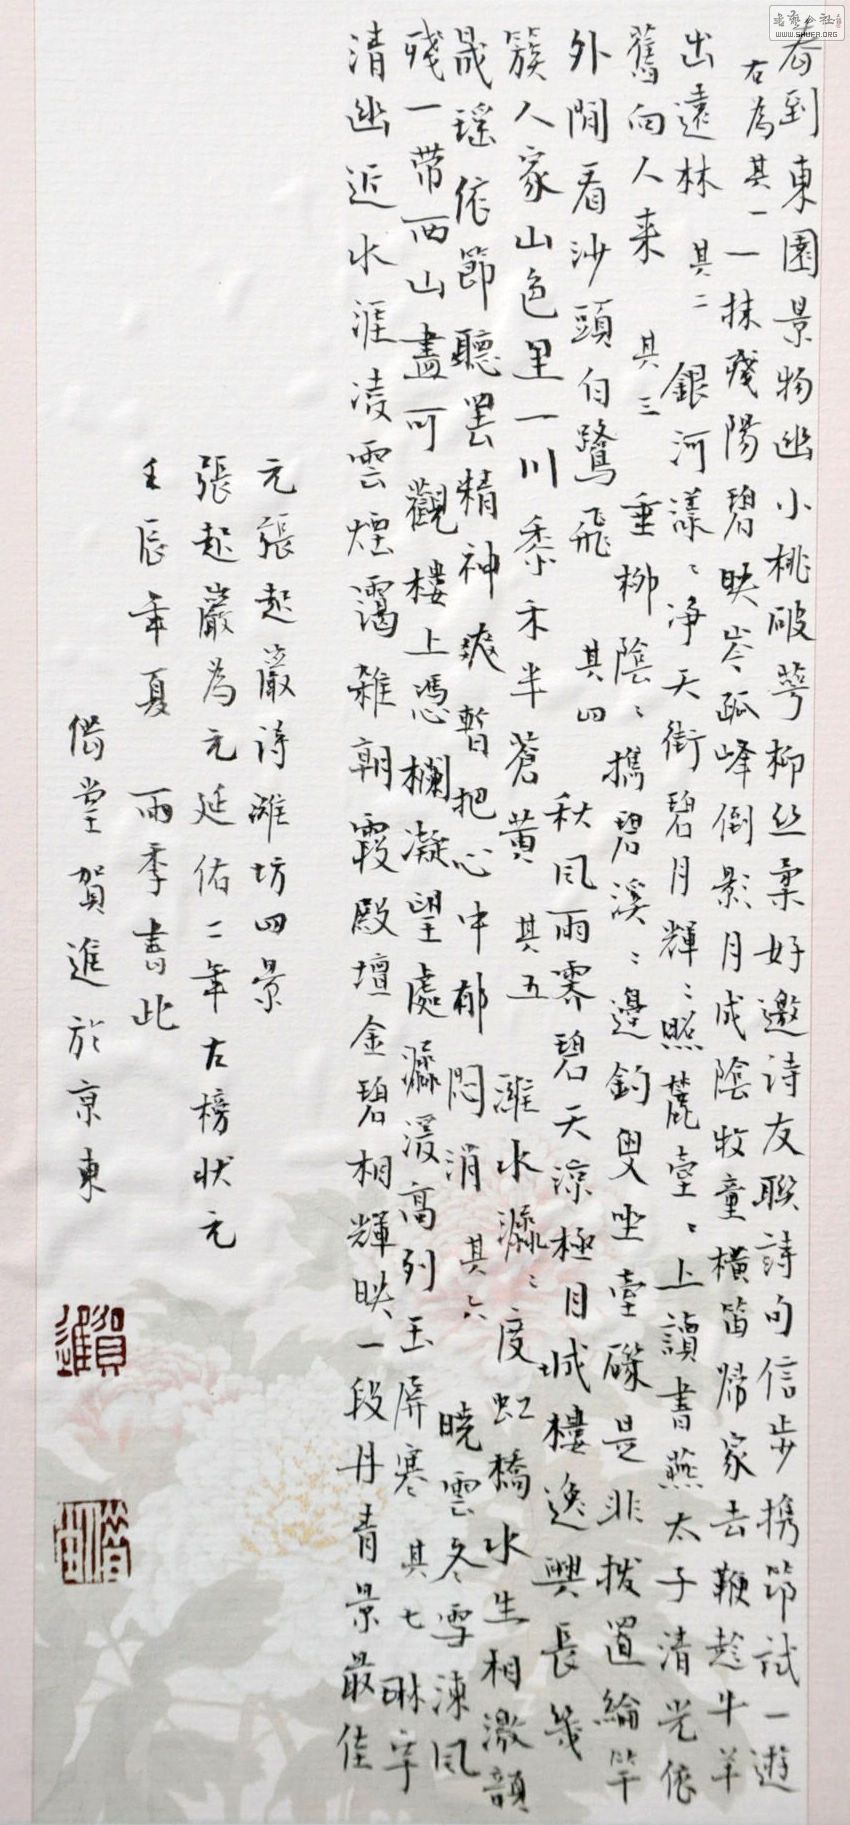 春到東園景物幽小桃破萼柳丝柔好邀诗友联詩句信步携笻试一遊
右為其一一抹殘陽碧映岑孤峰倒影月成陰牧童橫笛歸家去鞭趁牛羊
出遠林其二銀河漾〻净天街碧月輝〻照麓臺〻上讀書燕太子清光依
舊向人来其三垂柳陰〻携碧溪〻邊釣叟坐臺磯是非拨置綸竿
外閒看沙頭白鷺飛其四秋风雨霽碧天凉極目城樓逸興長幾
簇人家山色里一川黍禾半蒼黄其五濰水㶟〻度虹橋水生相激韻
晟瑶依節聽罢精神爽暫把心中郁悶消其六晓雲冬雪凍风
殘一带西山盡可觀樓上憑欄凝望處瀛漫高列玉屏寒其七琳宇
清幽近水涯凌雲煙靄雜朝霞殿壇金碧相輝映一段丹青景最佳
元張起巖诗濰坊四景
張起巖為元延佑二年左榜状元
壬辰年夏雨季書此
借堂賀進於京東
賀進
書艺公社
WWW.SHUFA.ORG